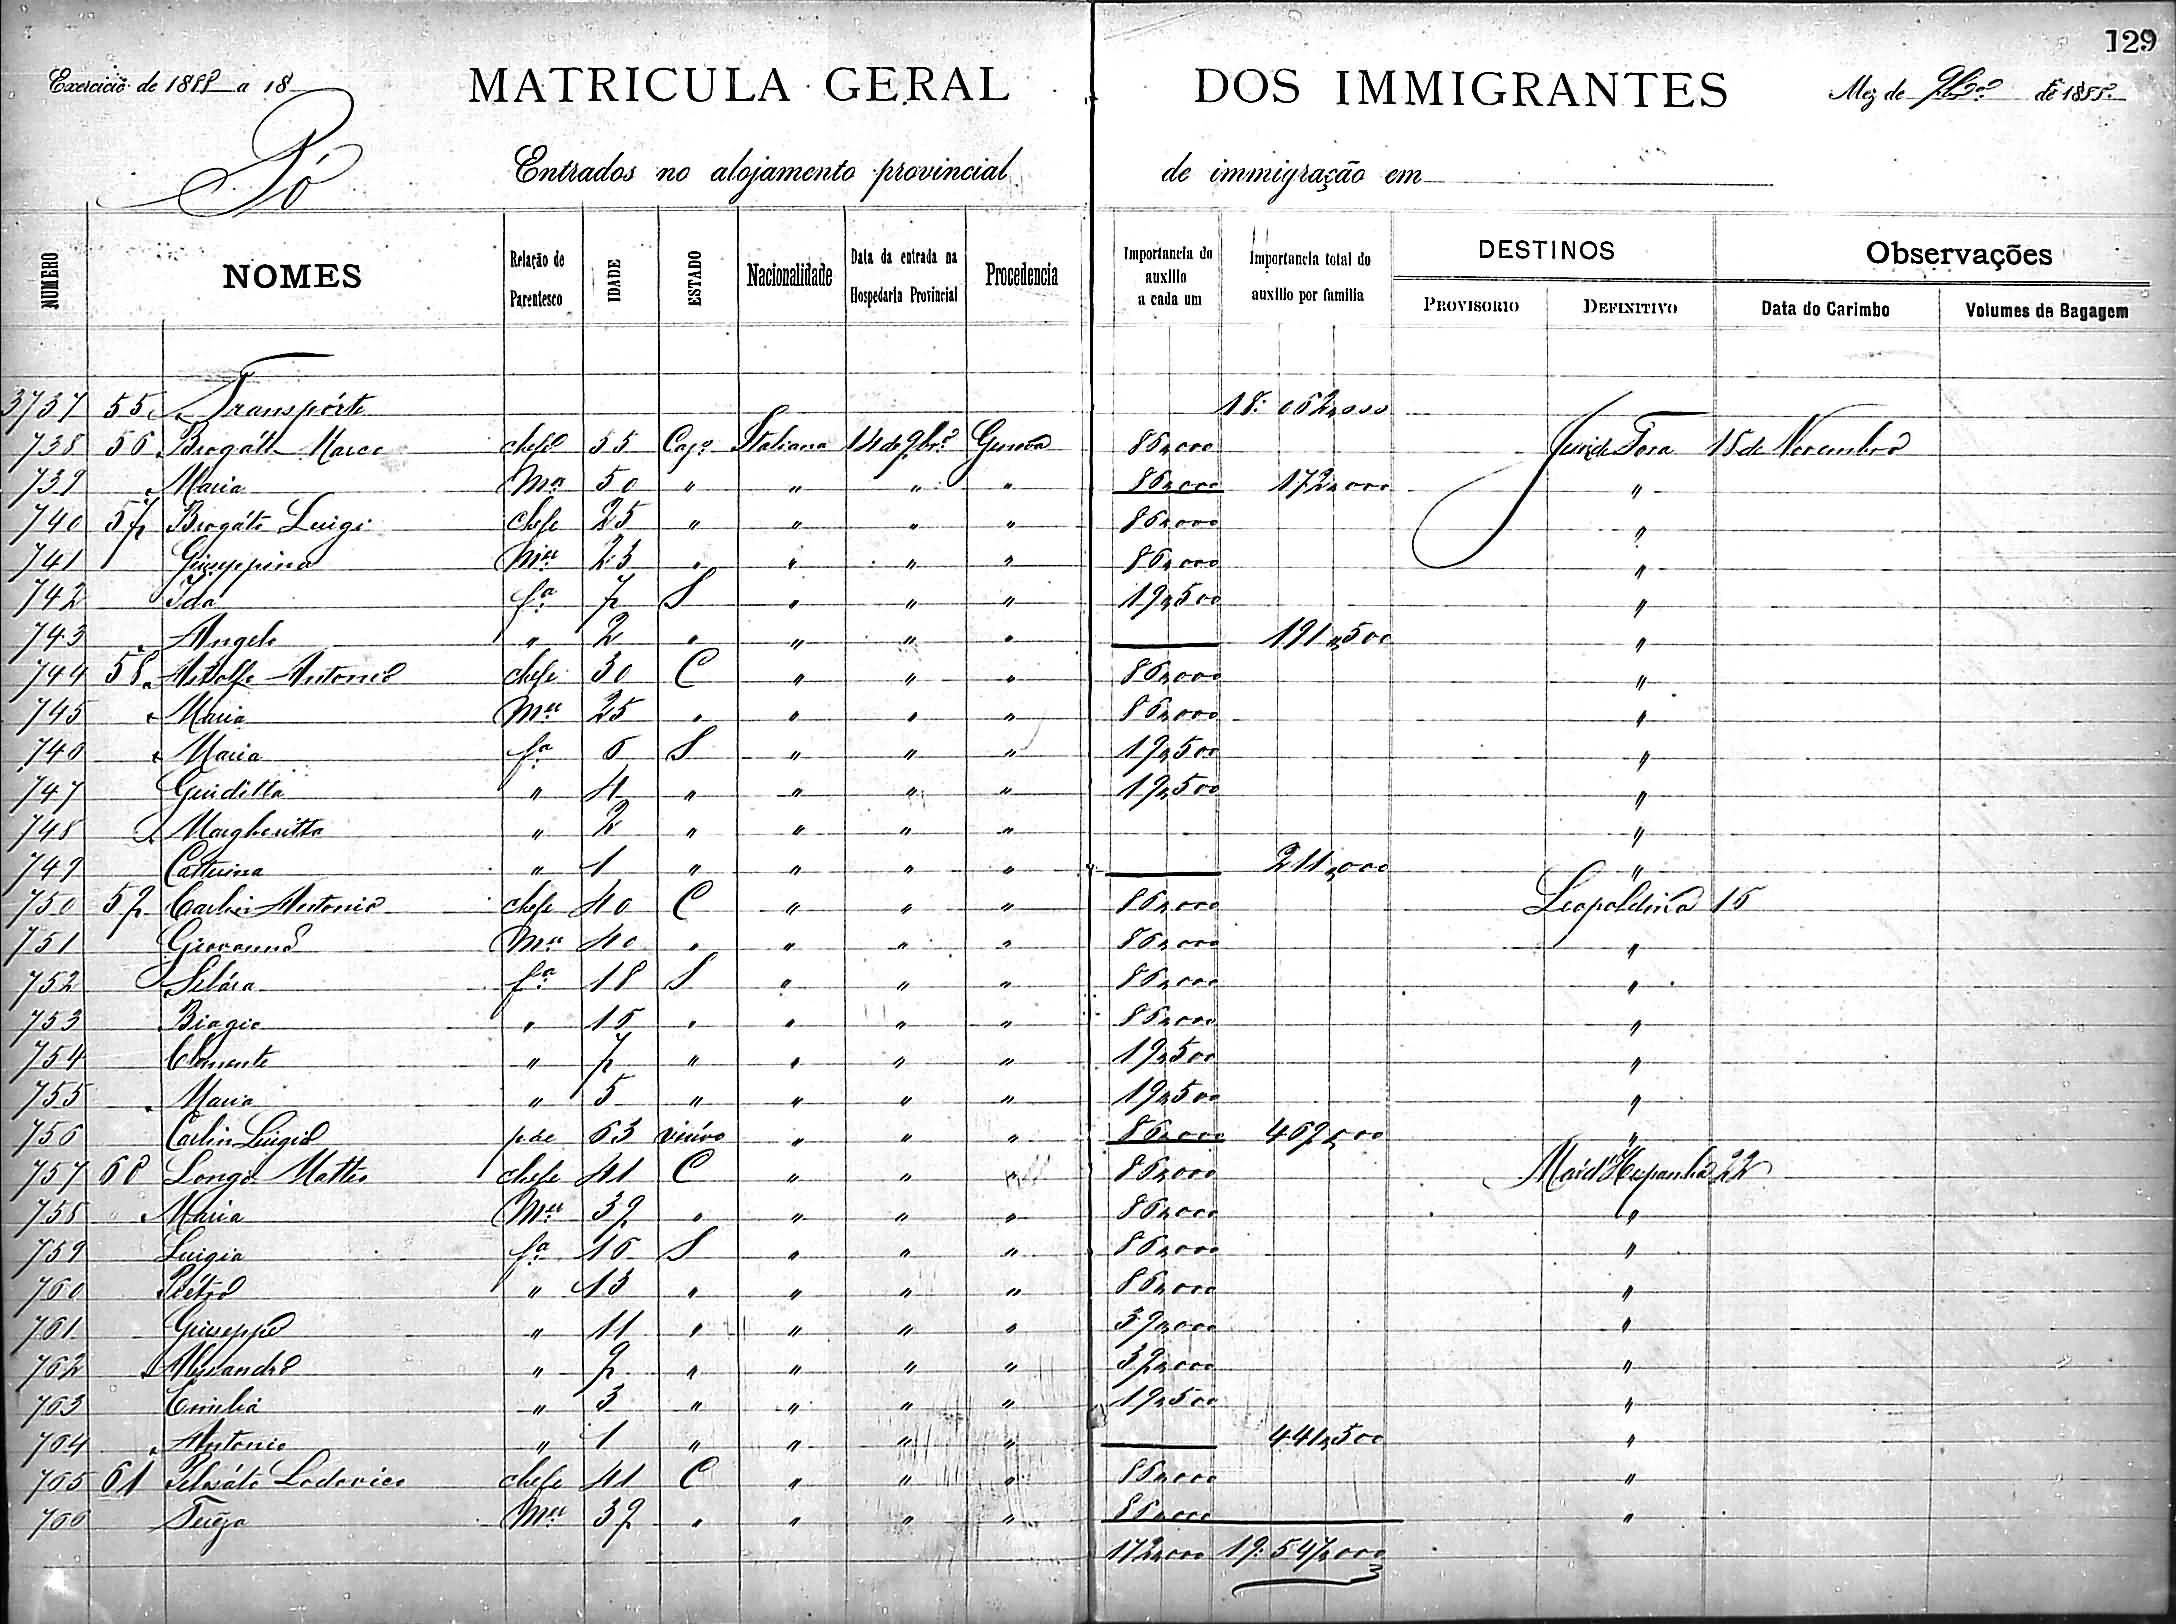 129
Exercicio de 1888 a 18
MATRICULA GERAL DOS IMMIGRANTES
Mez de 9bro de 1888
Pó
Entrados no alojamento provincial de immigração em
NUMERO NOMES Relação de Parentesco IDADE ESTADO Nacionalidade Data da entrada na Hospedaria Provincial Procedencia Importancia do auxilio a cada um Importancia total do auxilio por familia DESTINOS PROVISORIO DEFINITIVO Observações Data do Carimbo Volumes de Bagagem
3737 55 Transpórte 18:062,000
738 56 Brogátto Marco chefe 55 Cazo Italiana 14 de 9bro Genova 86,000 Juiz de Fora 15 de Novembro
739 " Maria Mer 50 " " " " 86,000 172,000 "
740 57 Brogáto Luigi chefe 25 " " " " 86,000 "
741 Giuseppina Mer 23 " " " " 86,000 "
742 Ida fa 7 S " " " 19,500 "
743 " Angelo " 2 " " " " 191,500 "
744 58 Antonio chefe 30 C " " " 86,000 "
745 " Maria Mer 25 " " " " 86,000 "
746 " Maria fa 6 S " " " 19,500 "
747 Giuditta " 4 " " " " 19,500 "
748 Margheritta " 2 " " " " "
749 Catterina " 1 " " " " 211,000 "
750 59 Carlin Antonio chefe 40 C " " " 86,000 Leopoldina 16
751 Giovanna Mer 40 " " " " 86,000 "
752 fa 18 S " " " 86,000 "
753 Biagio " 16 " " " " 86,000 "
754 Clemente " 7 " " " " 19,500 "
755 " Maria " 5 " " " " 19,500 "
756 Carlin Luigio pae 63 viúvo " " " 86,000 469,000 "
757 60 Longo Matteo chefe 41 C " " 86,000 Mar d'Hespanha 22
758 " Maria Mer 39 " " " " 86,000 "
759 Luigia fa 16 S " " " 86,000 "
760 Piétro " 13 " " " " 86,000 "
761 Giuseppe " 11 " " " " 39,000 "
762 Alessandro " 9 " " " " 39,000 "
763 Emilia " 3 " " " " 19,500 "
764 " Antonio " 1 " " " " 441,500 "
765 61 Lodovico chefe 41 C " " " 86,000 "
766 Mer 39 " " " " 86,000 "
172,000 19:547,000